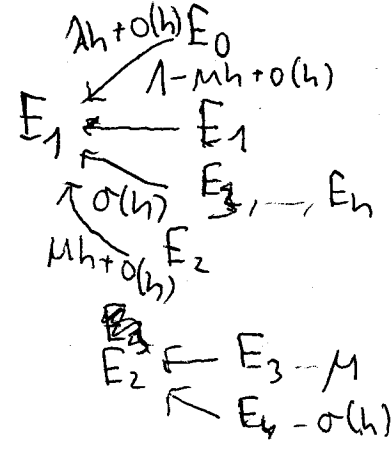 λh+o(h) E₀
1-μh+o(h)
E₁ ← E₁
o(h) E₃, ..., Eₙ
μh+o(h) E₂
E₂ ← E₃ - μ
← E₄ - o(h)